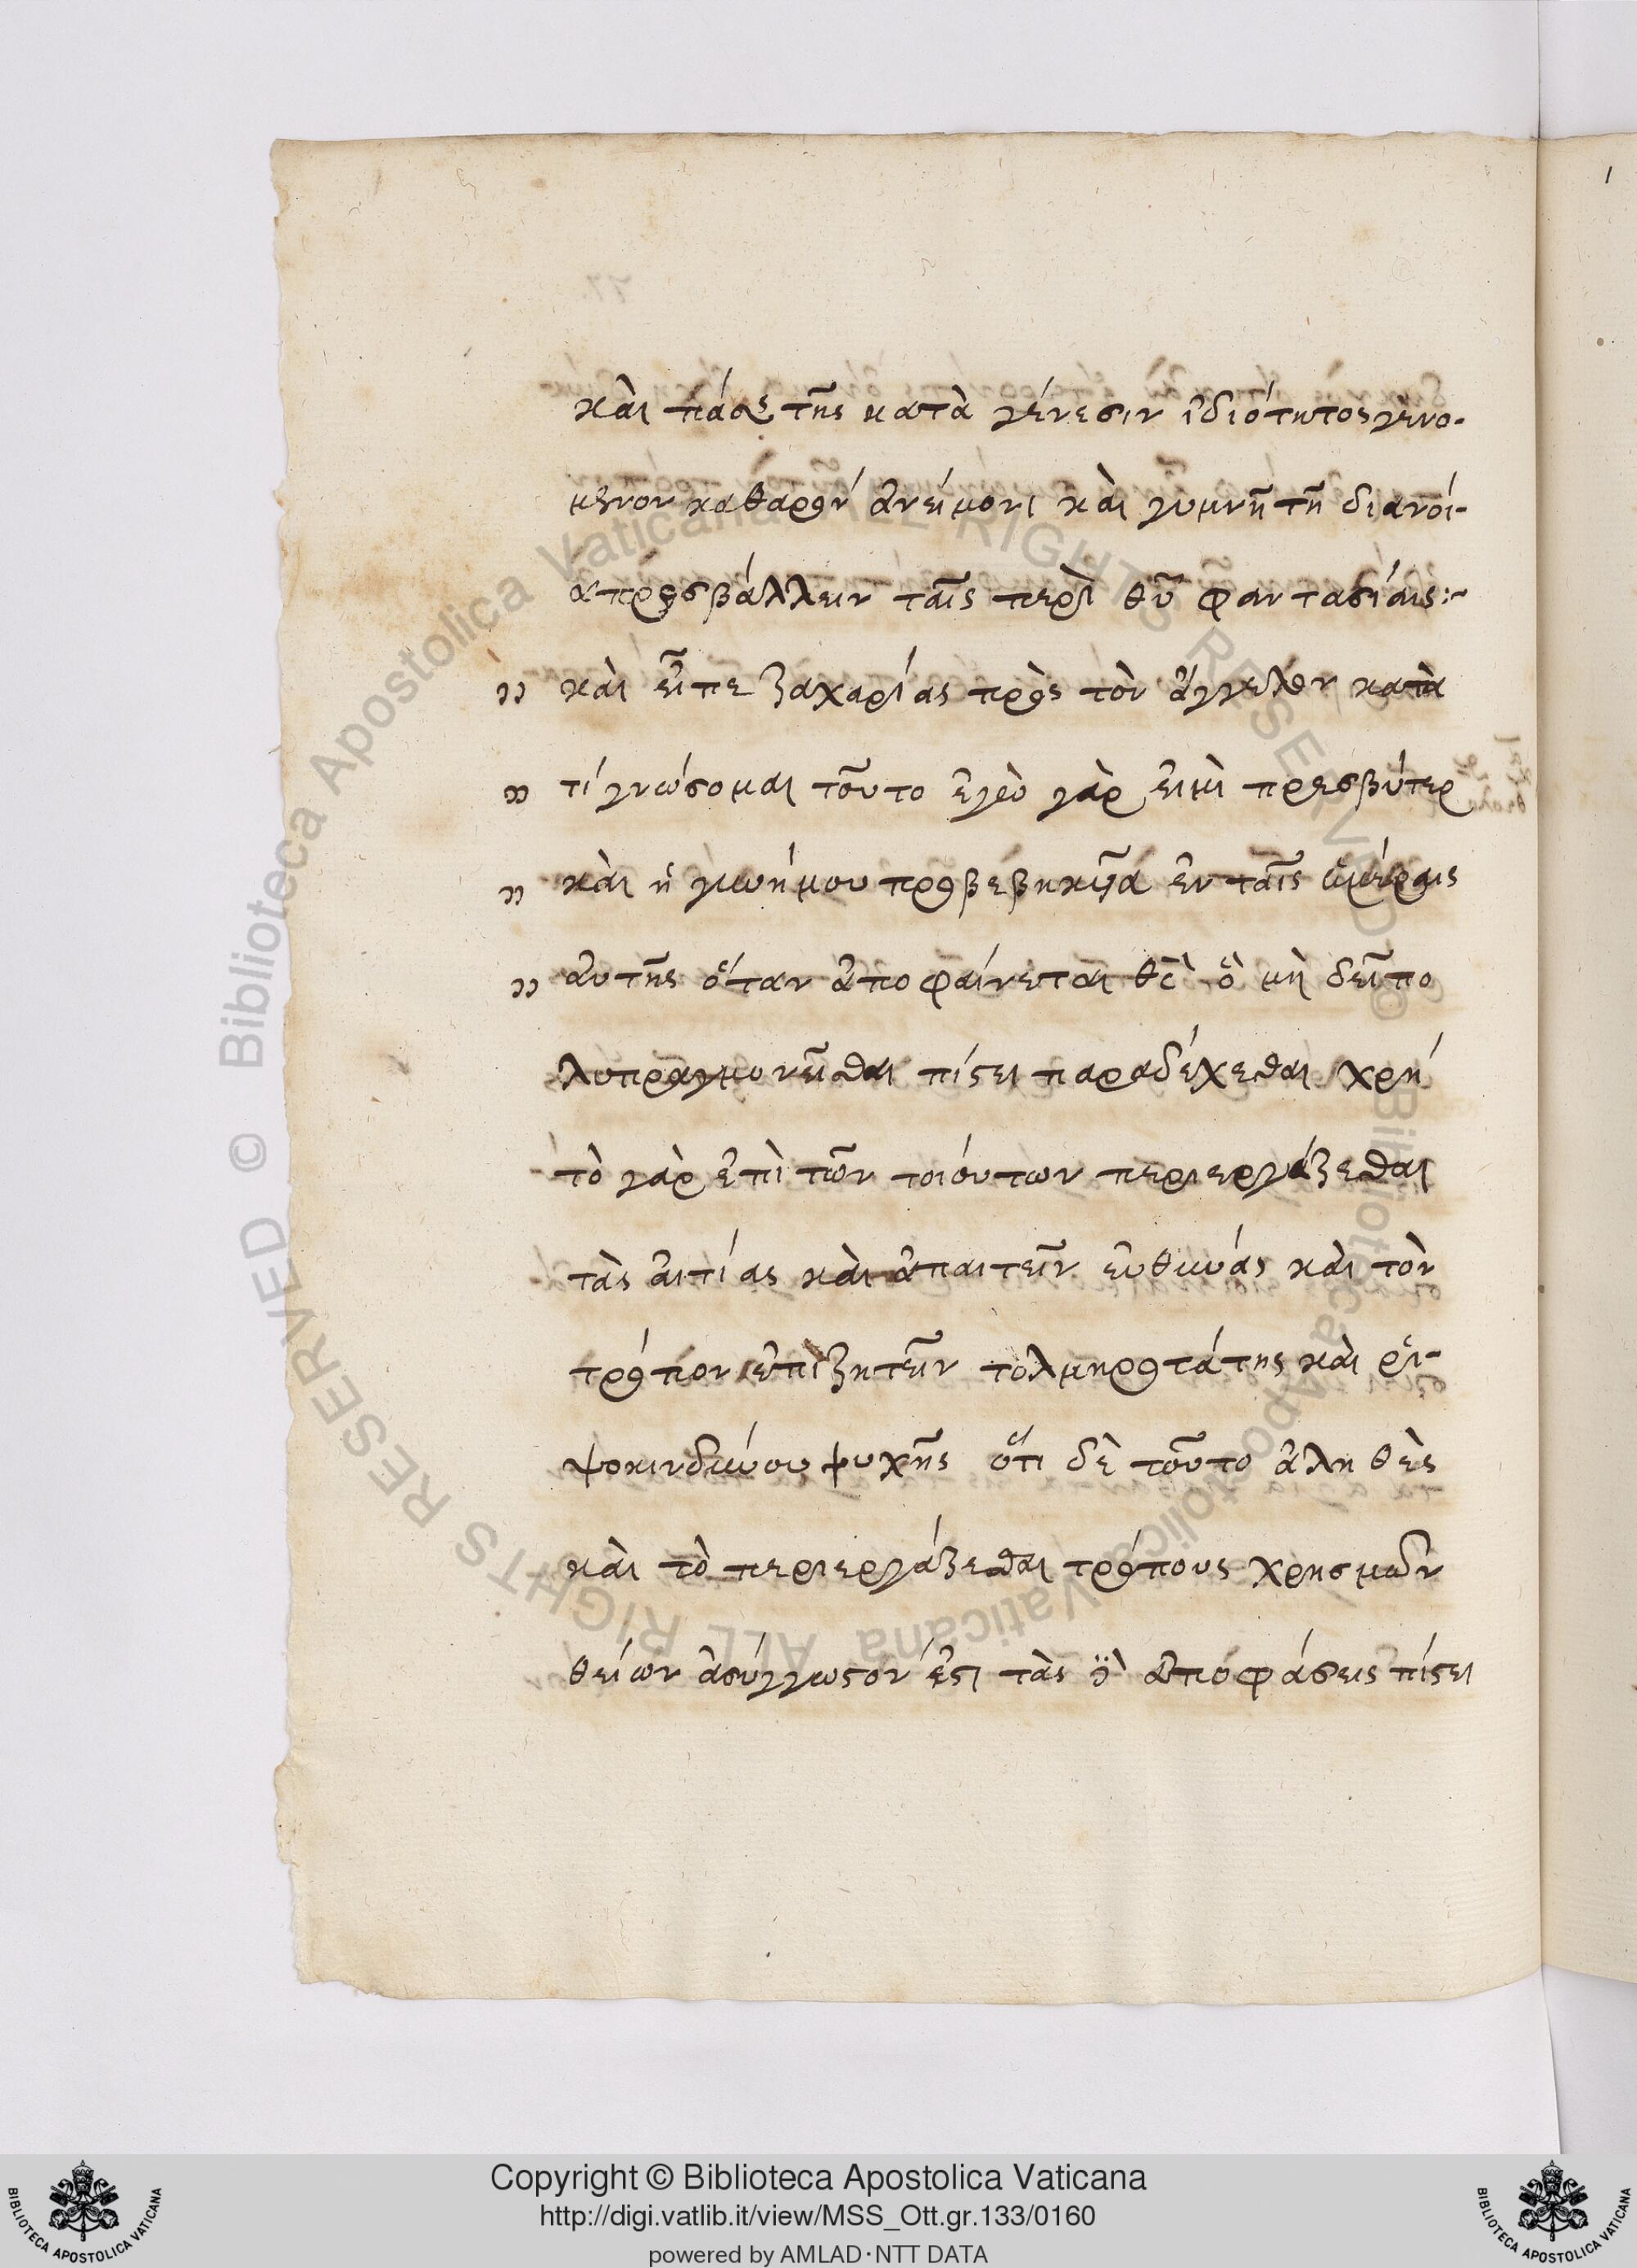 καὶ πάσης τῆς κατὰ γένεσιν ἰδιότητος γενο-
μενον καθαρὸν ἀνείμονι καὶ γυμνῆ τῆ διανοί-
α προσβάλλειν ταῖς περὶ θῦ φαντασίαις:~
" καὶ εἶπε ζαχαρίας πρὸς τὸν ἄγγελον κατὰ
" τί γνώσομαι τοῦτο ἐγὼ γὰρ εἰμὶ πρεσβύτερ
" καὶ ἡ γυνή μου προβεβηκυῖα ἐν ταῖς ἡμέραις
" αὐτῆς ὅταν ἀποφαίνεται θς ὃ μὴ δεῖ πο
λυπραγμονεῖσθαι πίστει παραδέχεσθαι χρή
τὸ γὰρ ἐπὶ τῶν τοιούτων περιεργάζεσθαι
τὰς αἰτίας καὶ ἀπαιτεῖν εὐθύνας καὶ τὸν
τρόπον ἐπιζητεῖν τολμηροτάτης καὶ ῥι-
ψοκινδύνου ψυχῆς ὅτι δὲ τοῦτο ἀληθὲς
καὶ τὸ περιεργάζεσθαι τρόπους χρησμῶν
θείων ἀσύγγωστον ἐστι τὰς δὲ ἀποφάσεις πίστει
Copyright © Biblioteca Apostolica Vaticana
http://digi.vatlib.it/view/MSS_Ott.gr.133/0160
powered by AMLAD·NTT DATA
BIBLIOTECA APOSTOLICA VATICANA
BIBLIOTECA APOSTOLICA VATICANA
© Biblioteca Apostolica Vaticana ALL RIGHTS RESERVED
© Biblioteca Apostolica Vaticana ALL RIGHTS RESERVED